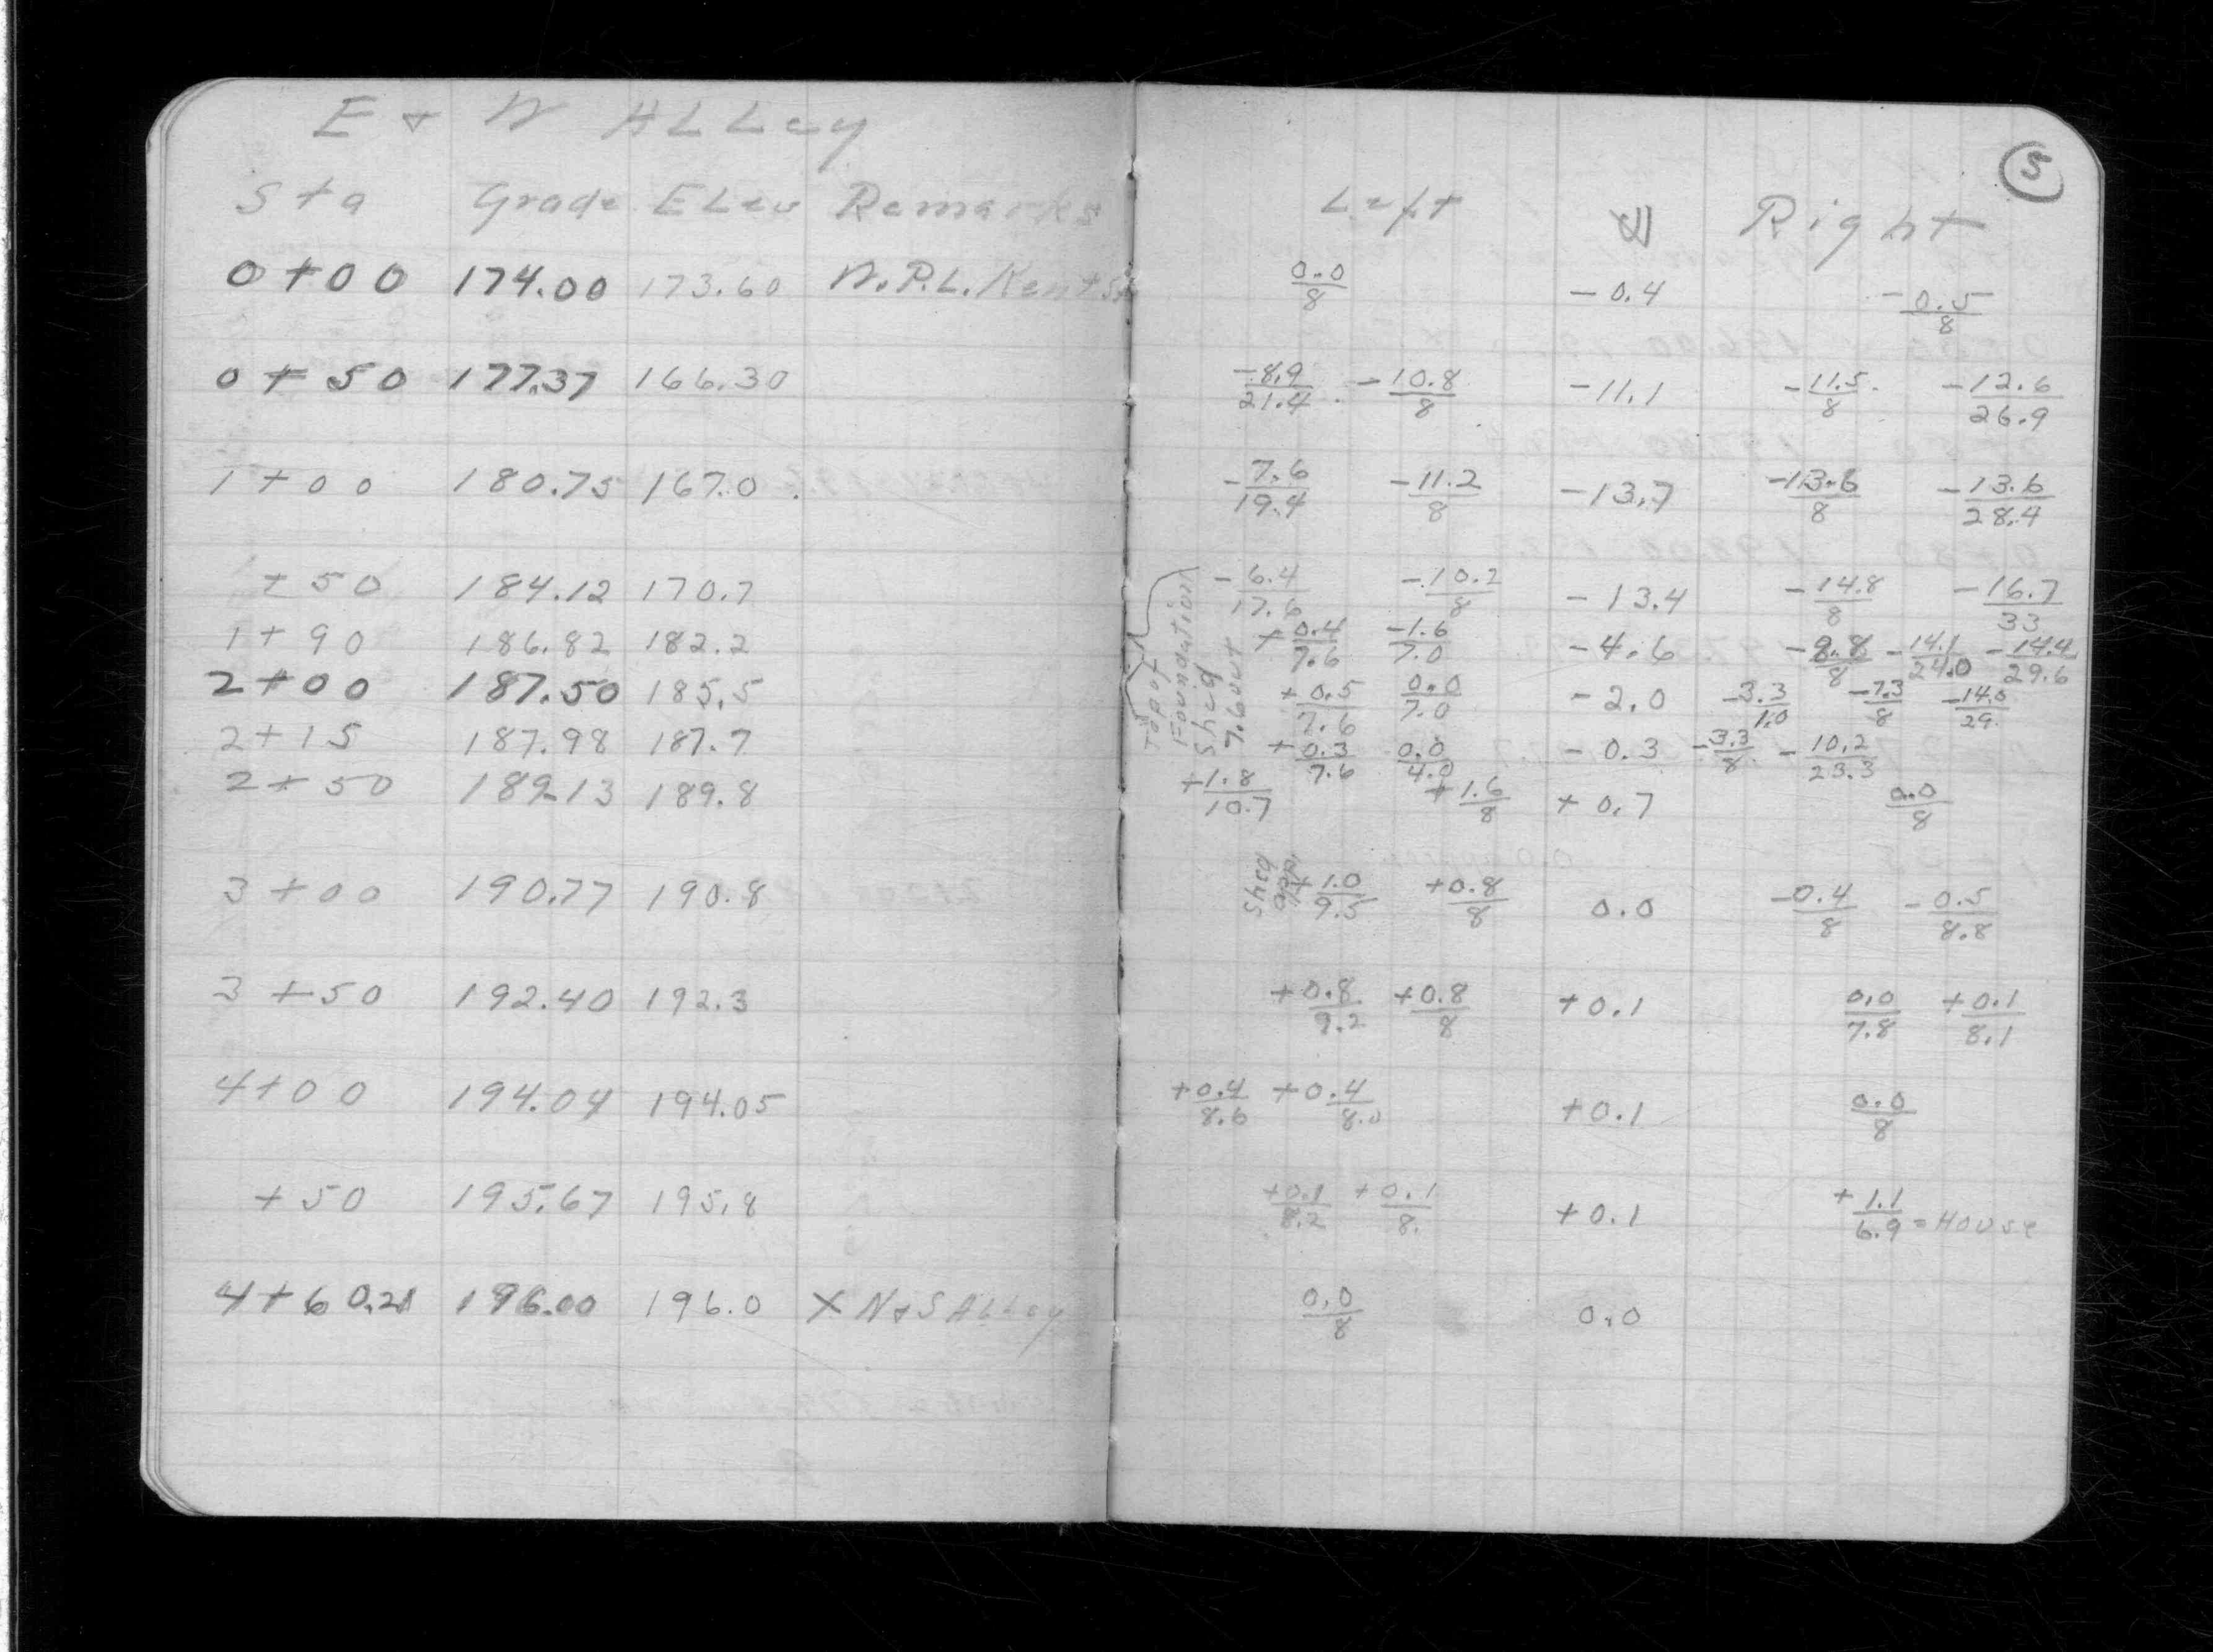 E & W ALLey
Sta Grade ELev Remarks
0+00 174.00 173.60 W.P.L. Kent St
0+50 177.37 166.30
1+00 180.75 167.0
+50 184.12 170.7
1+90 186.82 182.2
2+00 187.50 185.5
2+15 187.98 187.7
2+50 189.13 189.8
3+00 190.77 190.8
3+50 192.40 192.3
4+00 194.04 194.05
+50 195.67 195.8
4+60.21 196.00 196.0 X N&S ALLey
5
Left ℄ Right
0.0/8 -0.4 -0.5/8
-8.9/21.4 -10.8/8 -11.1 -11.5/8 -12.6/26.9
-7.6/19.4 -11.2/8 -13.7 -13.6/8 -13.6/28.4
-6.4/17.6 -10.2/8 -13.4 -14.8/8 -16.7/33
+0.4/7.6 -1.6/7.0 -4.6 -9.8/8 -14.1/24.0 -14.4/29.6
+0.5/7.6 0.0/7.0 -2.0 -3.3/1.0 -7.3/8 -14.0/29.
+0.3/7.6 0.0/4.0 -0.3 -3.3/8 -10.2/23.3
Top of
Foundation
Shed
7.6 out
+1.8/10.7 +1.6/8 +0.7 0.0/8
Shed
opp. +1.0/9.5 +0.8/8 0.0 -0.4/8 -0.5/8.8
+0.8/9.2 +0.8/8 +0.1 0.0/7.8 +0.1/8.1
+0.4/8.6 +0.4/8.0 +0.1 0.0/8
+0.1/8.2 +0.1/8. +0.1 +1.1/6.9 = House
0.0/8 0.0